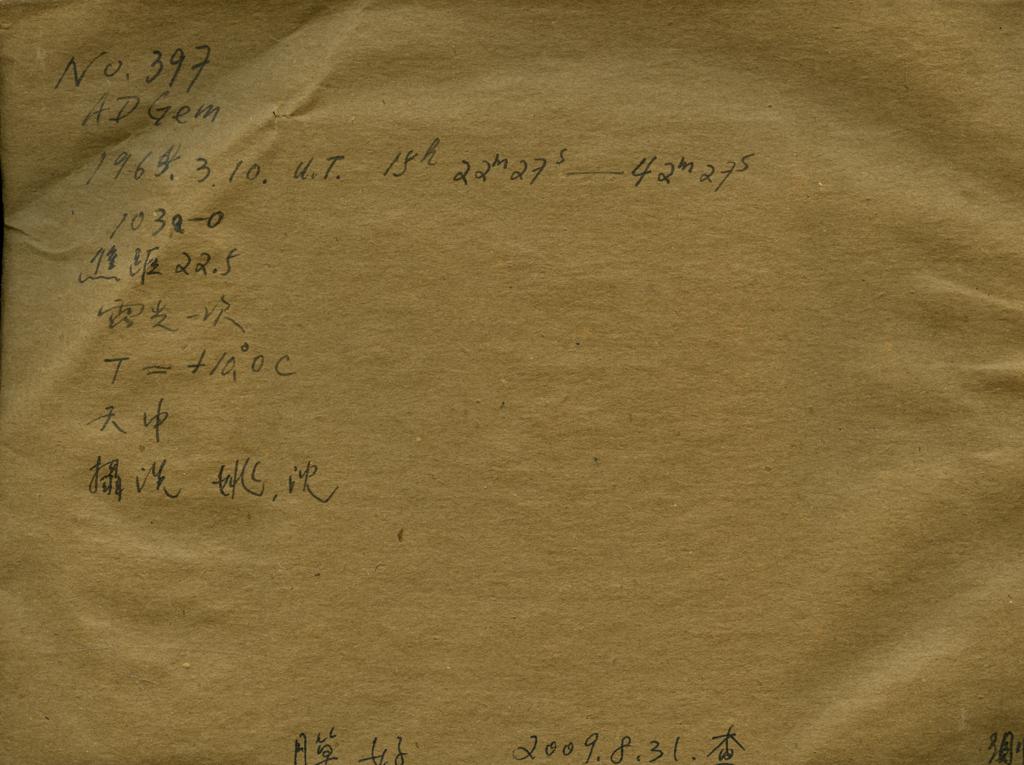 No. 397
AD Gem
1964. 3. 10. U.T. 15h 22m27s — 42m27s
103a-O
焦距 22.5
露光一次
T = +10.°0 C
天中
攝洗 姚, 沈
膜好 2009.8.31. 查